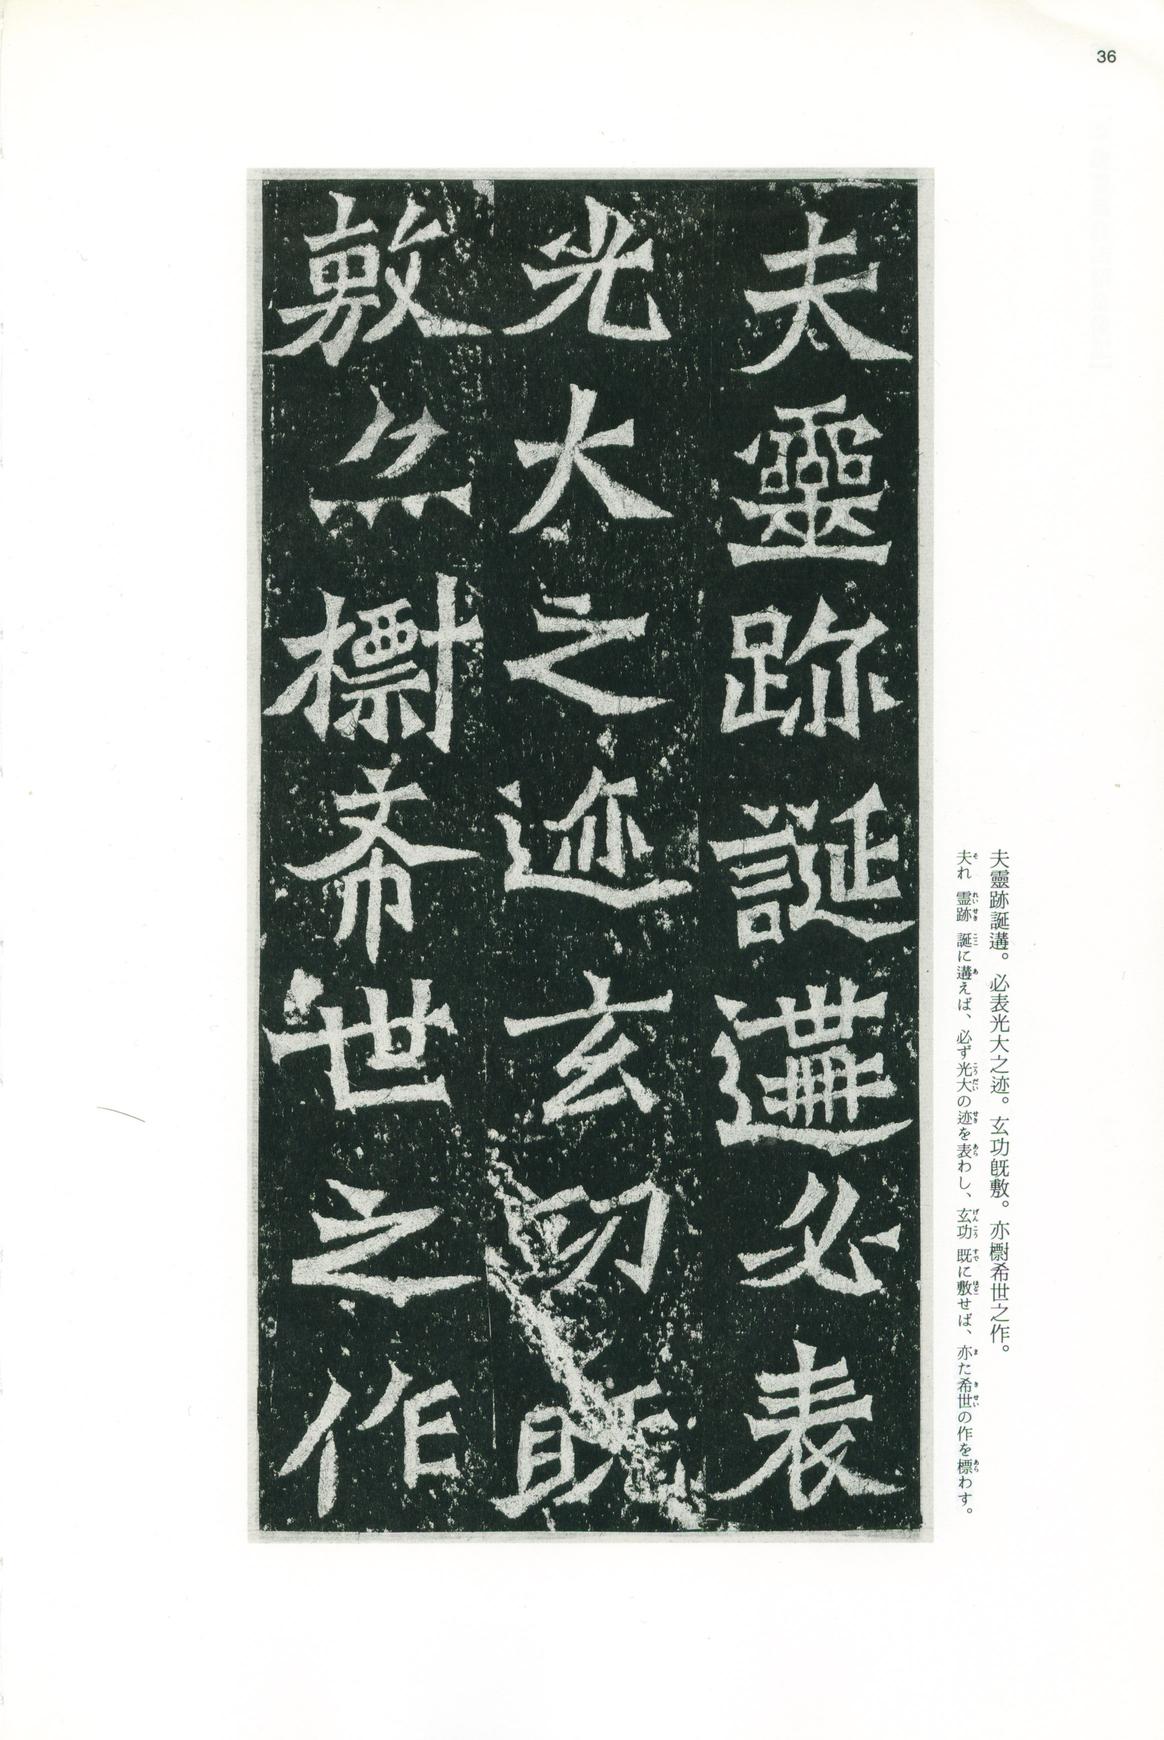 36
夫靈跡誕遘必表
光大之迹玄功既
敷亦櫉希世之作
夫靈跡誕遘。必表光大之迹。玄功既敷。亦櫉希世之作。
夫れ 霊跡 誕に遘えば、必ず光大の迹を表わし、玄功 既に敷せば、亦た希世の作を標わす。